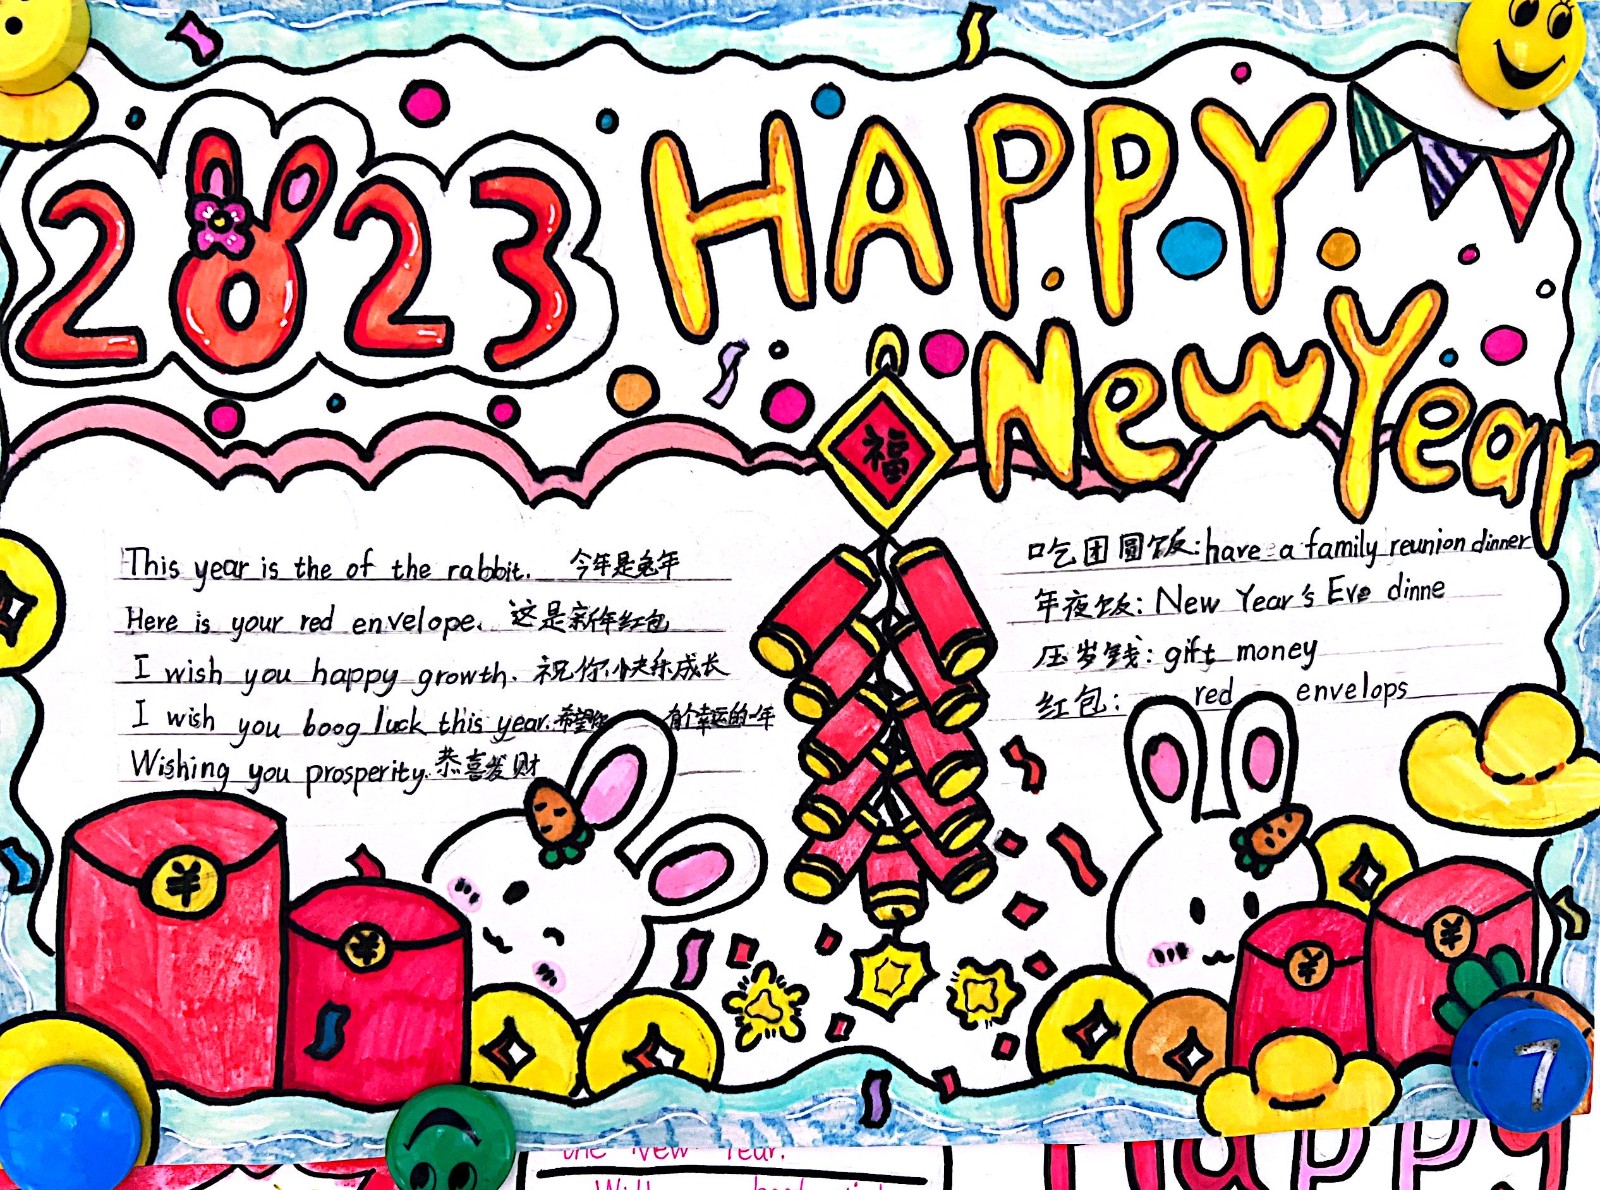 2023
HAPPY
New Year
福
This year is the of the rabbit. 今年是兔年
Here is your red envelope. 这是新年红包
I wish you happy growth. 祝你快乐成长
I wish you boog luck this year. 希望你 有个幸运的一年
Wishing you prosperity. 恭喜发财
吃团圆饭: have a family reunion dinner
年夜饭: New Year's Eve dinne
压岁钱: gift money
红包: red envelops
¥
¥
¥
¥
7
the New Year.
Happy